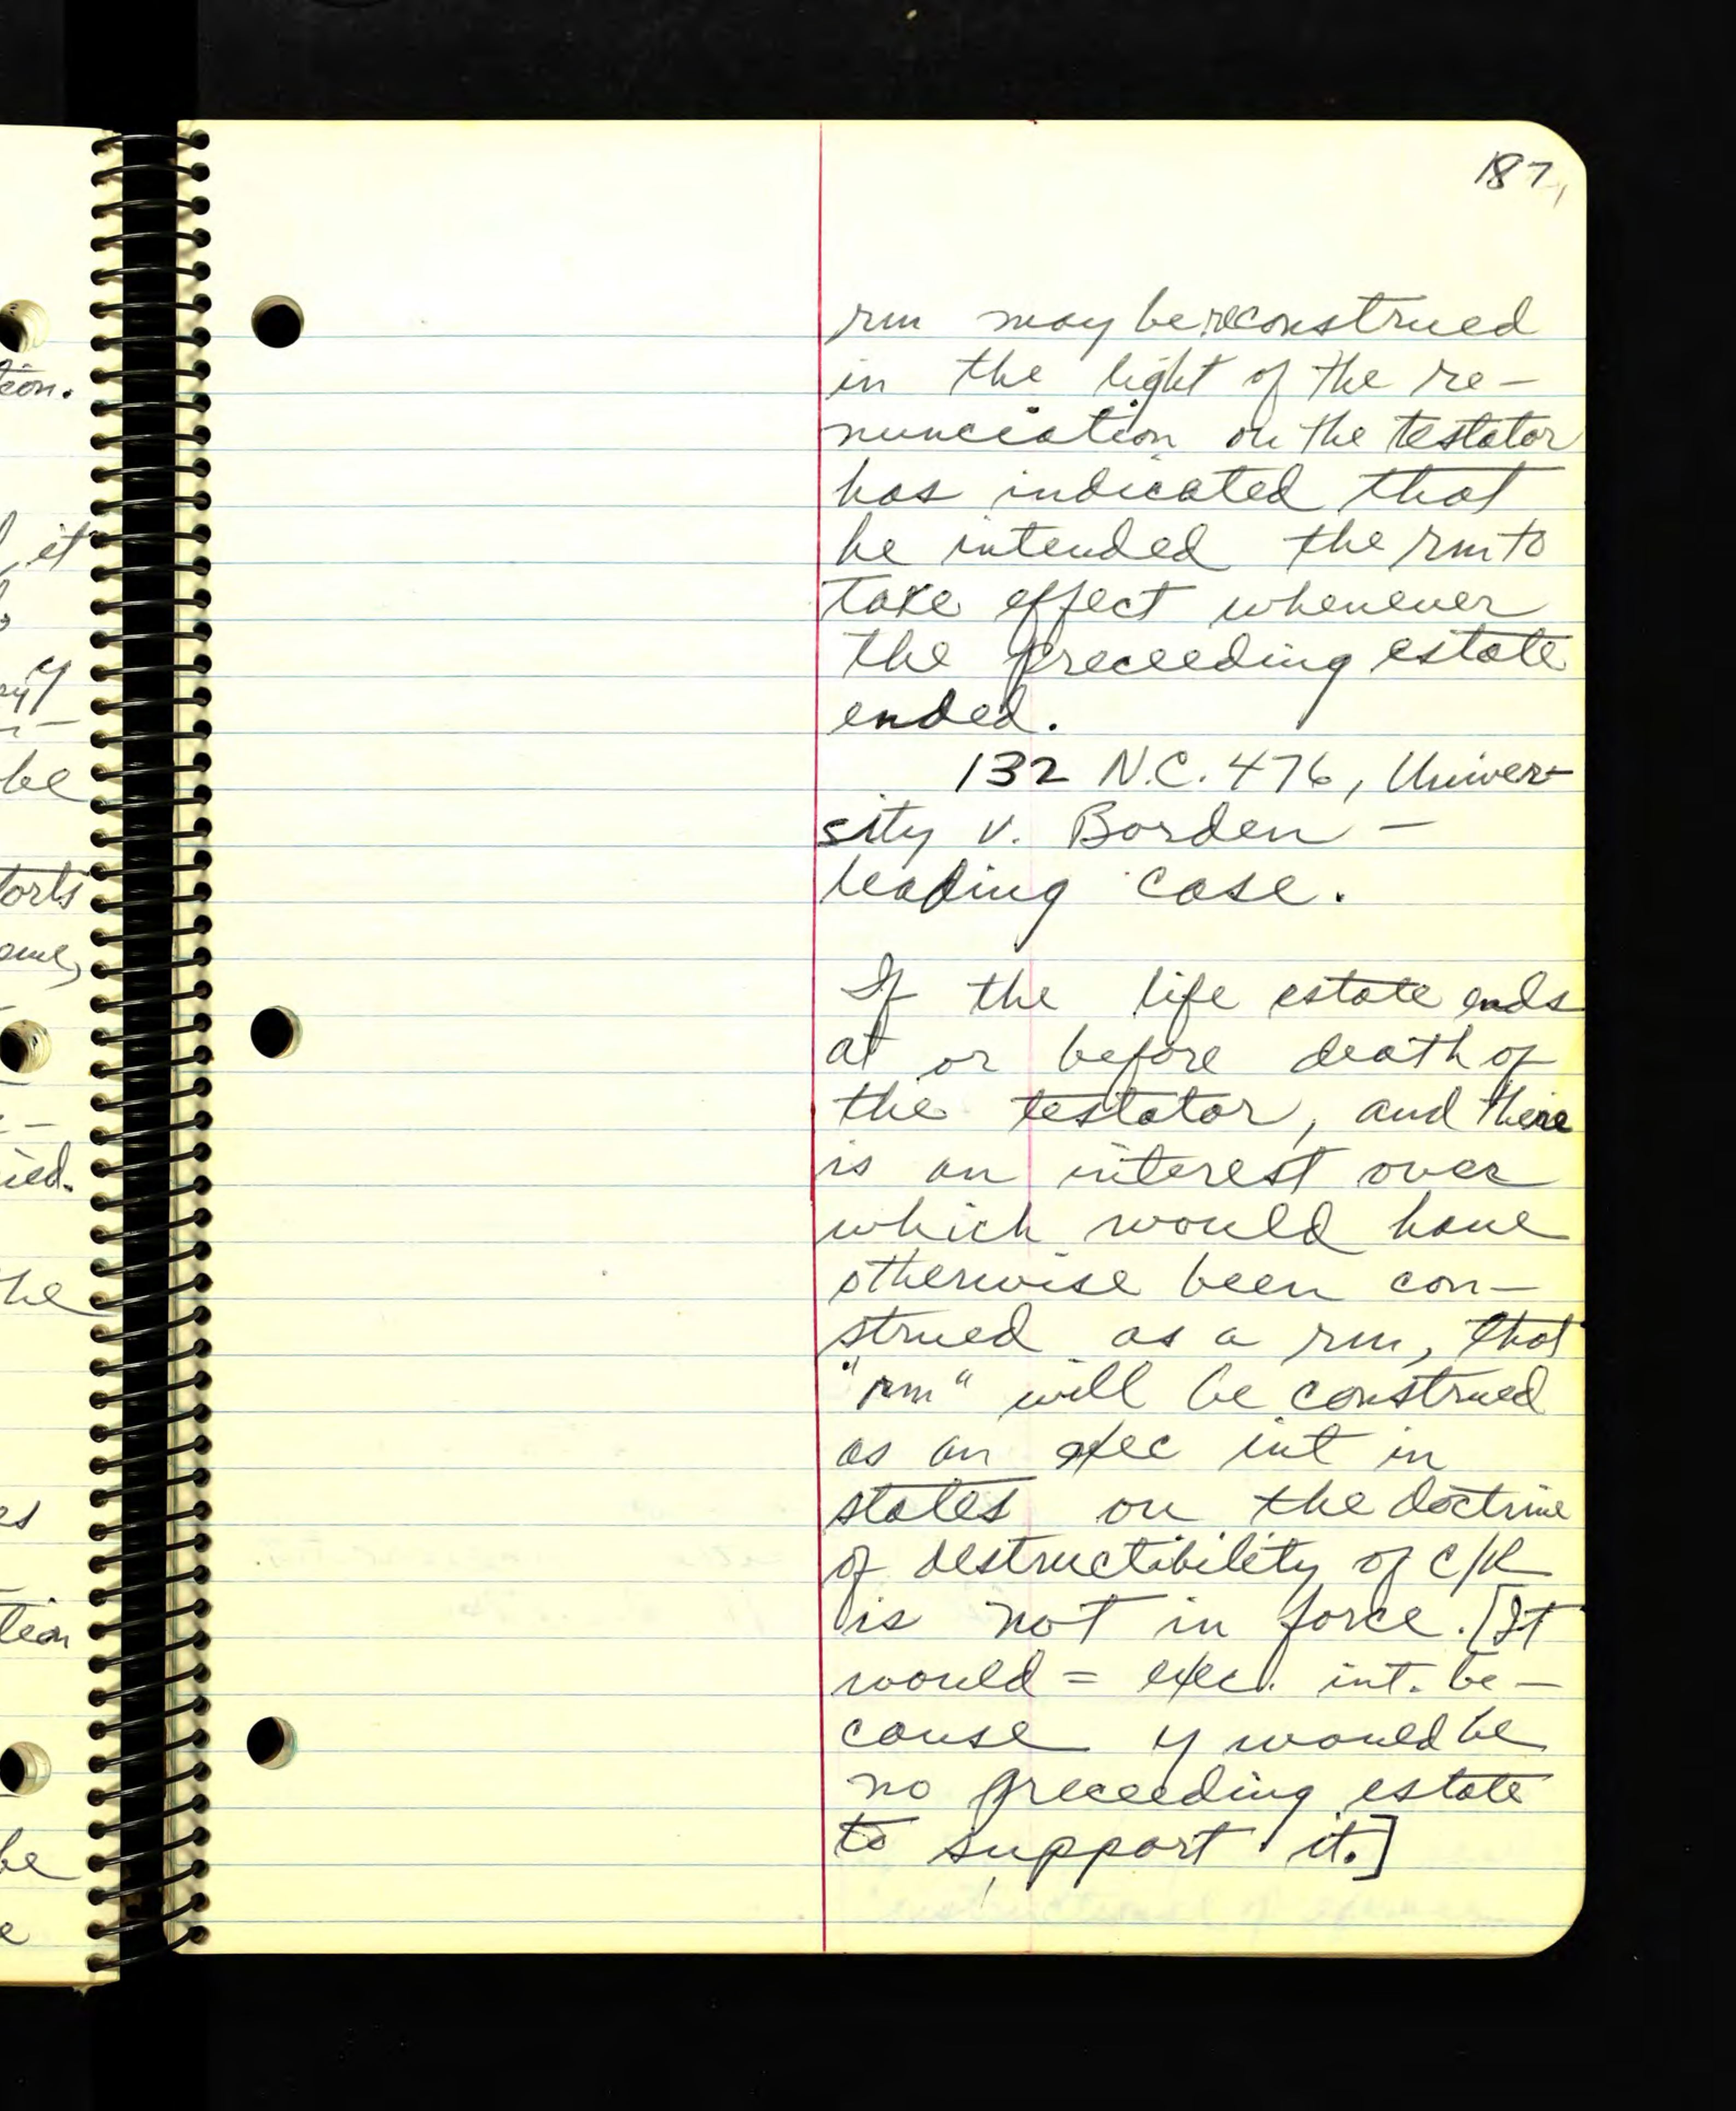 187
rm may be reconstrued
in the light of the re-
nunciation on the testator
has indicated that
he intended the rm to
take effect whenever
the preceeding estate
ended.
132 N.C. 476, Univer-
sity v. Borden -
leading case.
If the life estate ends
at or before death of
the testator, and there
is an interest over
which would have
otherwise been con-
strued as a rm, that
"rm" will be construed
as an exec int in
states on the doctrine
of destructibility of c/R
is not in force. [It
would = exec. int. be-
cause y would be
no preceeding estate
to support it.]
tion.
it
be
torts
ied.
the
es
tion
be
e